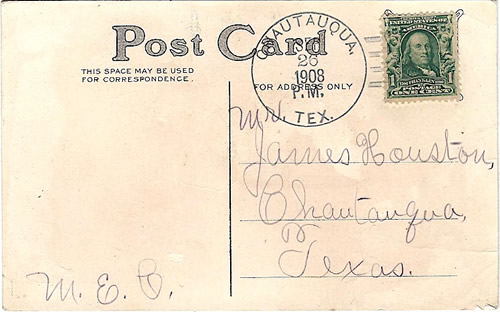 Post Card
THIS SPACE MAY BE USED
FOR CORRESPONDENCE.
FOR ADDRESS ONLY
CHAUTAUQUA,
26
1908
P.M.
TEX.
UNITED STATES OF
AMERICA
1 1
ONE CENT
Mr.
James Houston,
Chautauqua,
Texas.
M. E. C.